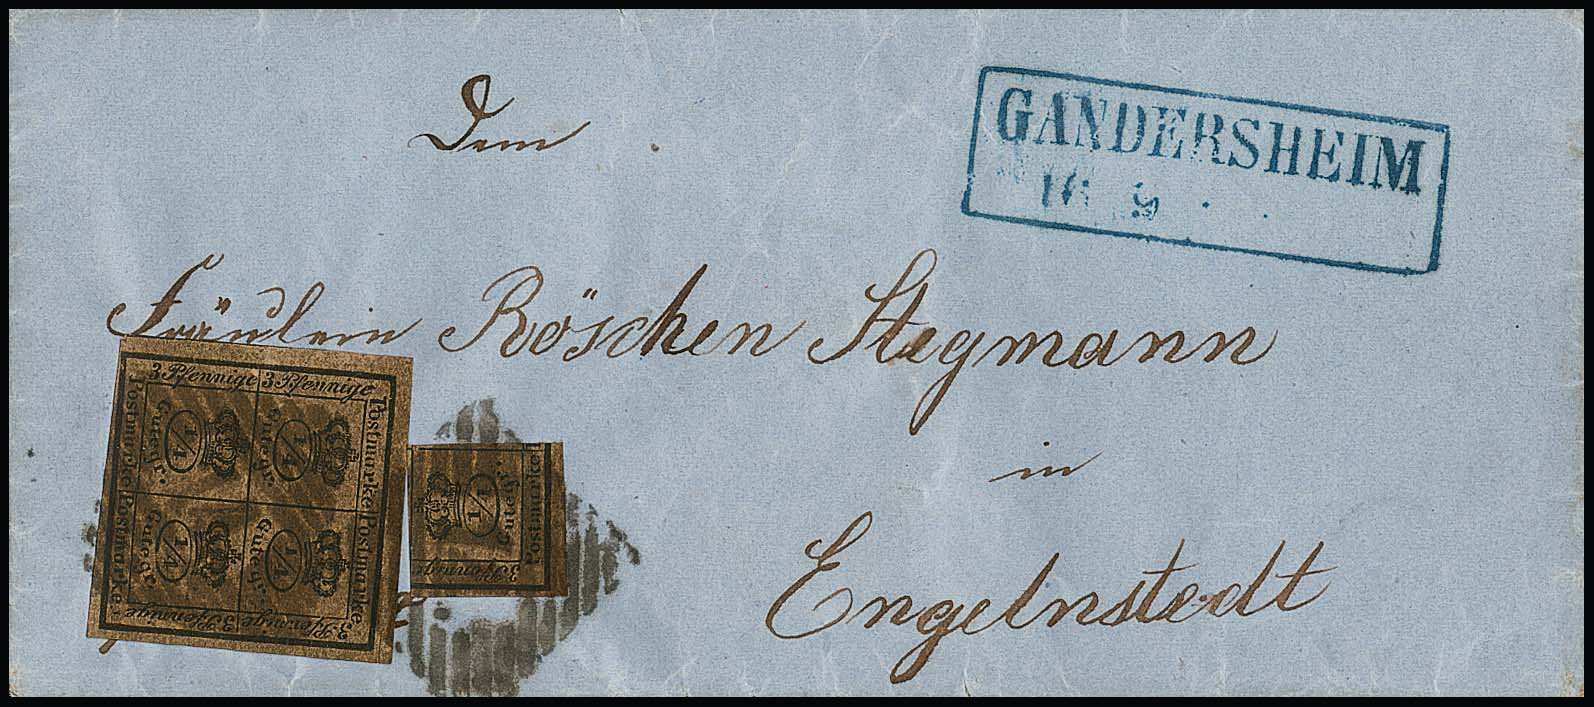 Dem
GANDERSHEIM
16 9
Fräulein Röschen Stegmann
in
Engelnstedt
3 Pfennige 3 Pfennige
Postmarke Postmarke
Postmarke Postmarke
3 Pfennige 3 Pfennige
1/4 Gutegr.
1/4 Gutegr.
1/4 Gutegr.
1/4 Gutegr.
1/4 Gutegr.
Postmarke
3 Pfennige